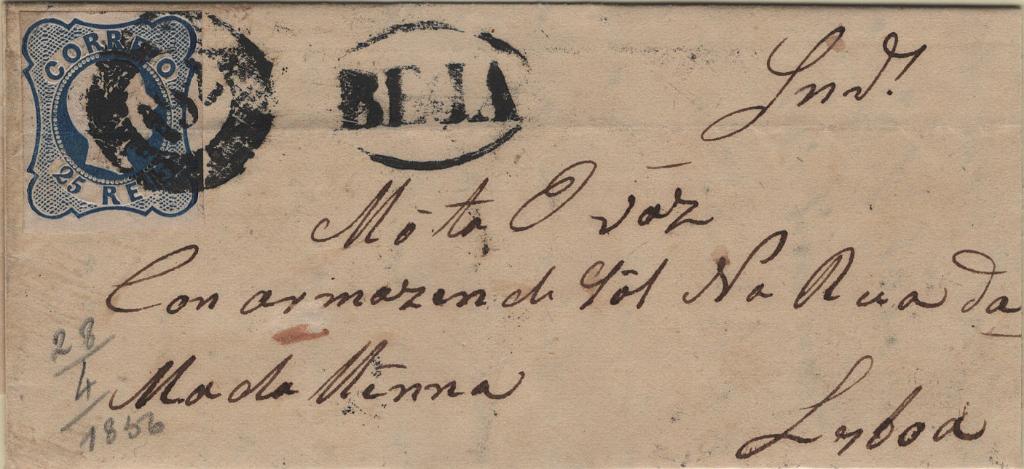 CORREO
25 REIS
BEJA
Snd.
Móta O váz
Con armazen de Sól Na Rua da
Mada llenna
Lysboa
28
4
1856